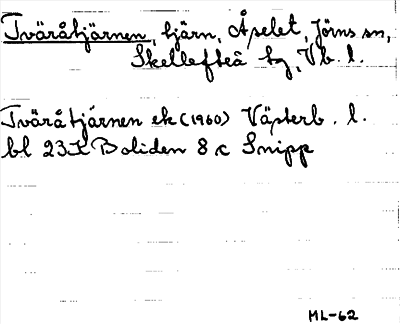 Tväråtjärnen, tjärn, Åselet, Jörns sn,
Skellefteå tg, Vb. l.
Tväråtjärnen ek (1960) Västerb. l.
bl 23K Boliden 8 c Snipp
ML-62